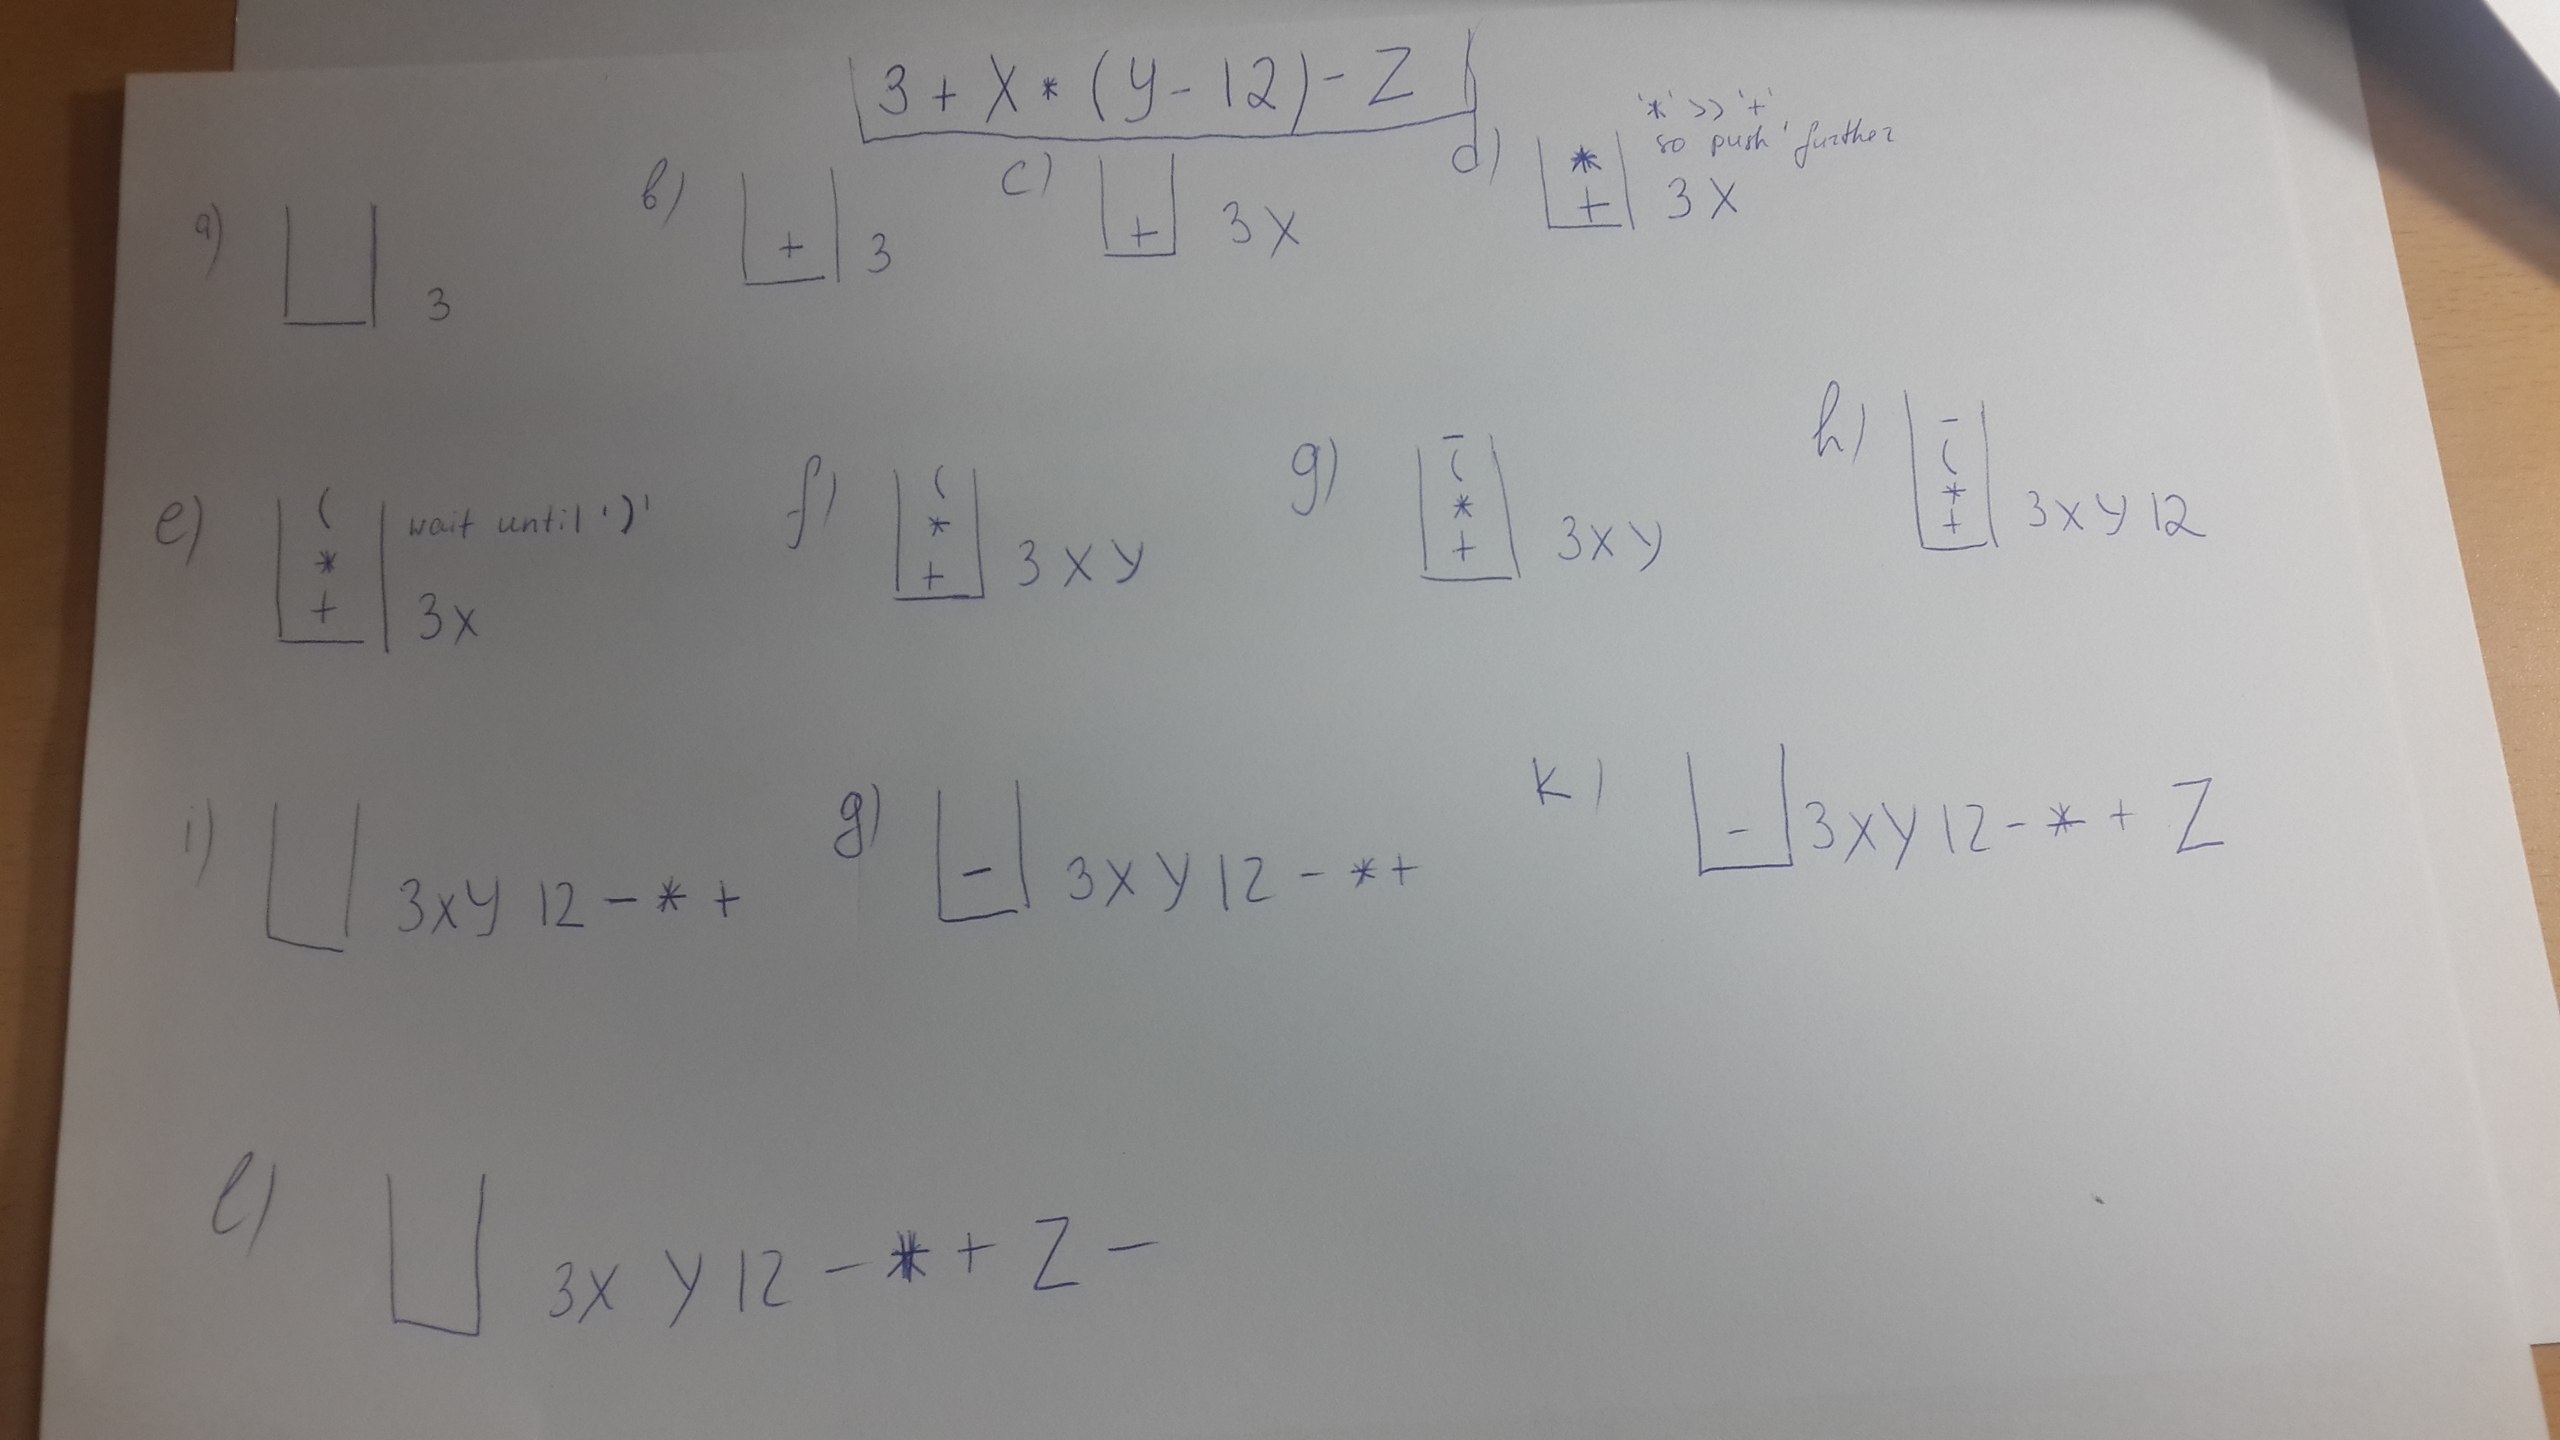 3 + X * (y - 12) - Z
a) 3
b) + 3
c) + 3 X
d) '*' >> '+'
so push further
*
+ 3 X
e) ( wait until ')'
*
+ 3 X
f) (
*
+ 3 X Y
g) -
(
*
+ 3 X Y
h) -
(
*
+ 3 X Y 12
i) 3 X Y 12 - * +
g) - 3 X Y 12 - * +
k) - 3 X Y 12 - * + Z
l) 3 X Y 12 - * + Z -